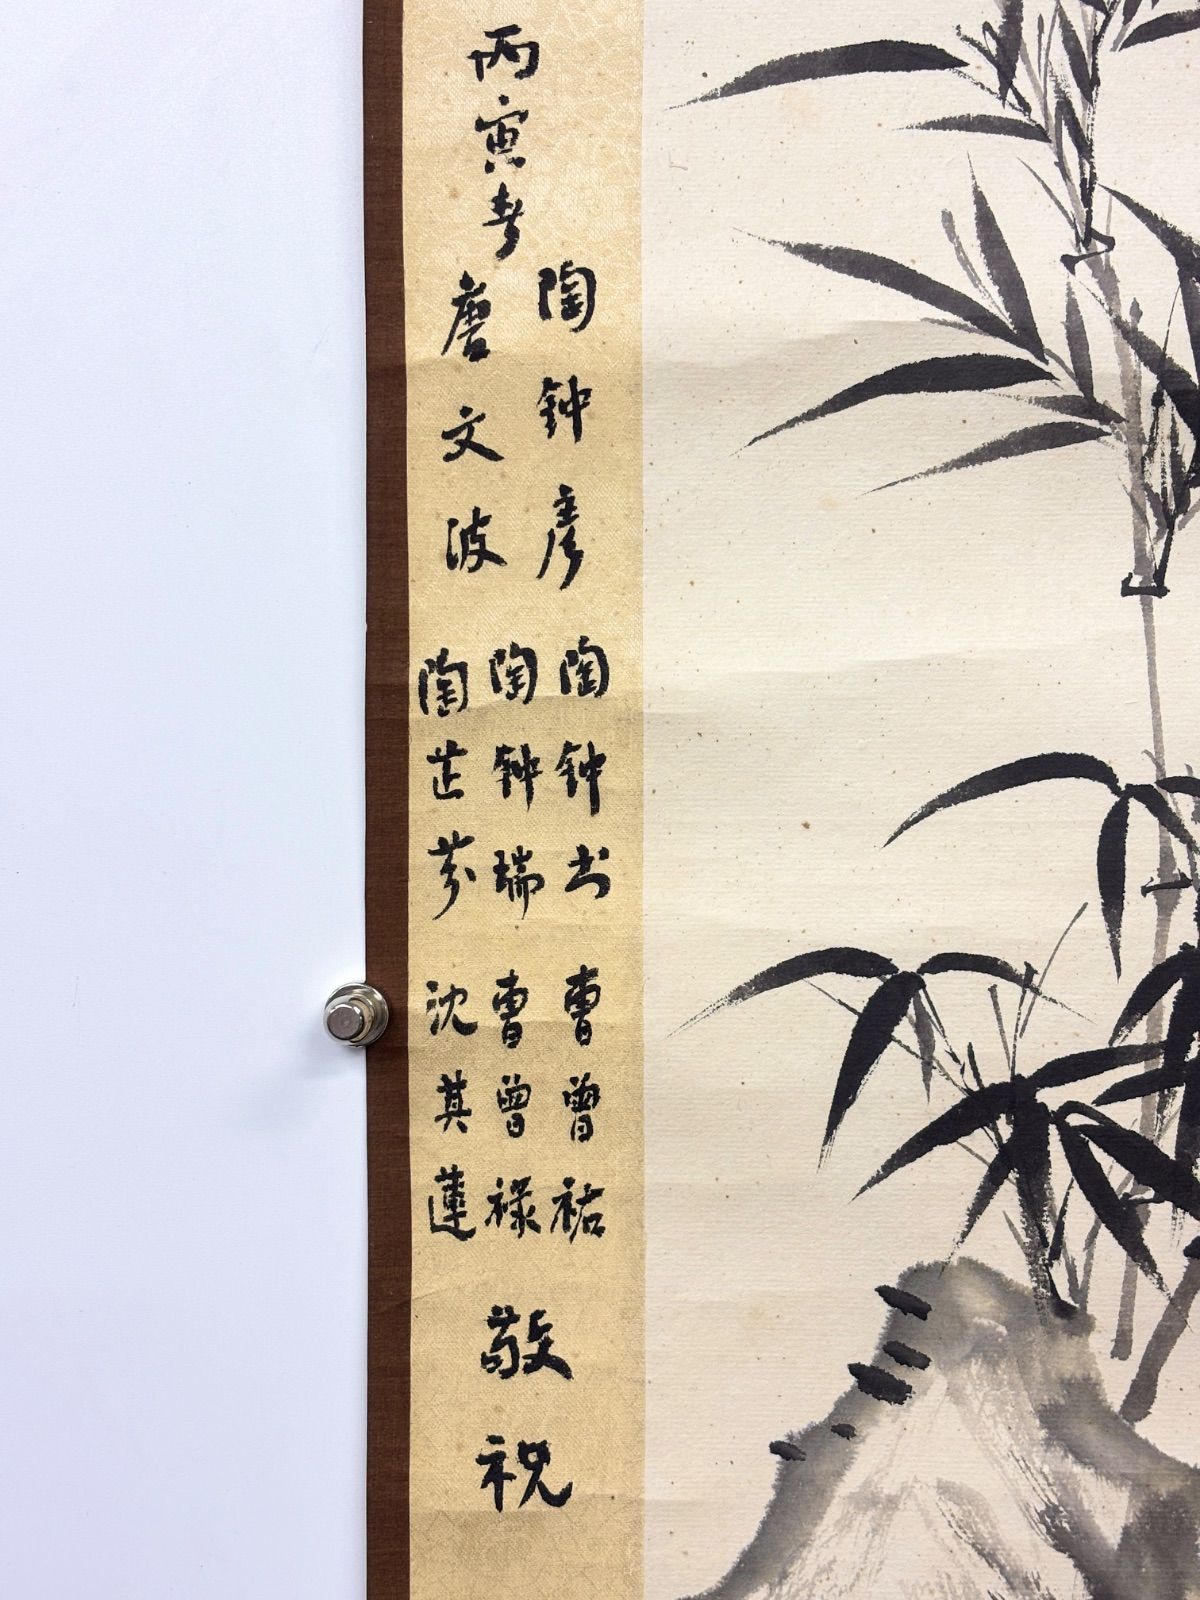 丙寅春
陶钟彦
唐文波
陶钟书
陶钟瑞
陶芷芬
曹曾祐
曹曾禄
沈其蓮
敬祝